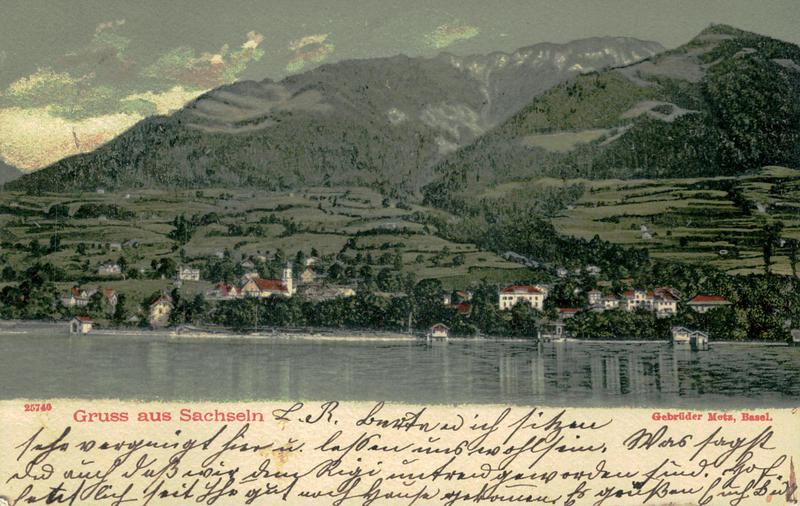 25740 Gruss aus Sachseln L. R. Berta u ich sitzen Gebrüder Metz, Basel.
sehr vergnügt hier u. lassen uns wohl sein. Was sagst
du auch daß wir dem Rigi untreu geworden sind. Hof-
fentlich seit Ihr gut nach Hause gekommen. Es grüßen Euch